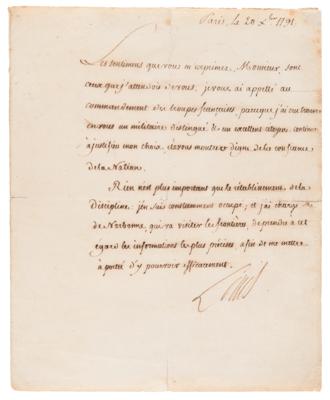 Paris, le 20 Xbre 1791.
Les sentimens que vous m'exprimez, Monsieur, sont
ceux que j'attendois de vous, je vous ai appellé au
commandement des troupes françoises, parceque j'ai cru trouver
en vous un militaire distingué & un excellent citoyen, continuez
à justifier mon choix, & à vous montrer digne de la confiance
de la Nation.
Rien n'est plus important que le rétablissement de la
discipline: j'en suis constamment occupé, et j'ai chargé M.
de Narbonne, qui va visiter les frontieres, de prendre à cet
egard les informations les plus précises afin de me mettre
à portée d'y pourvoir efficacement.
Louis